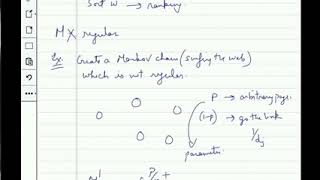 Sort W → ranking
M X regular
Ex. Create a Markov chain (surfing the web)
which is not regular.
P → arbitrary page.
(1-p) → go the link
1/dj
parameter
M' P/n +